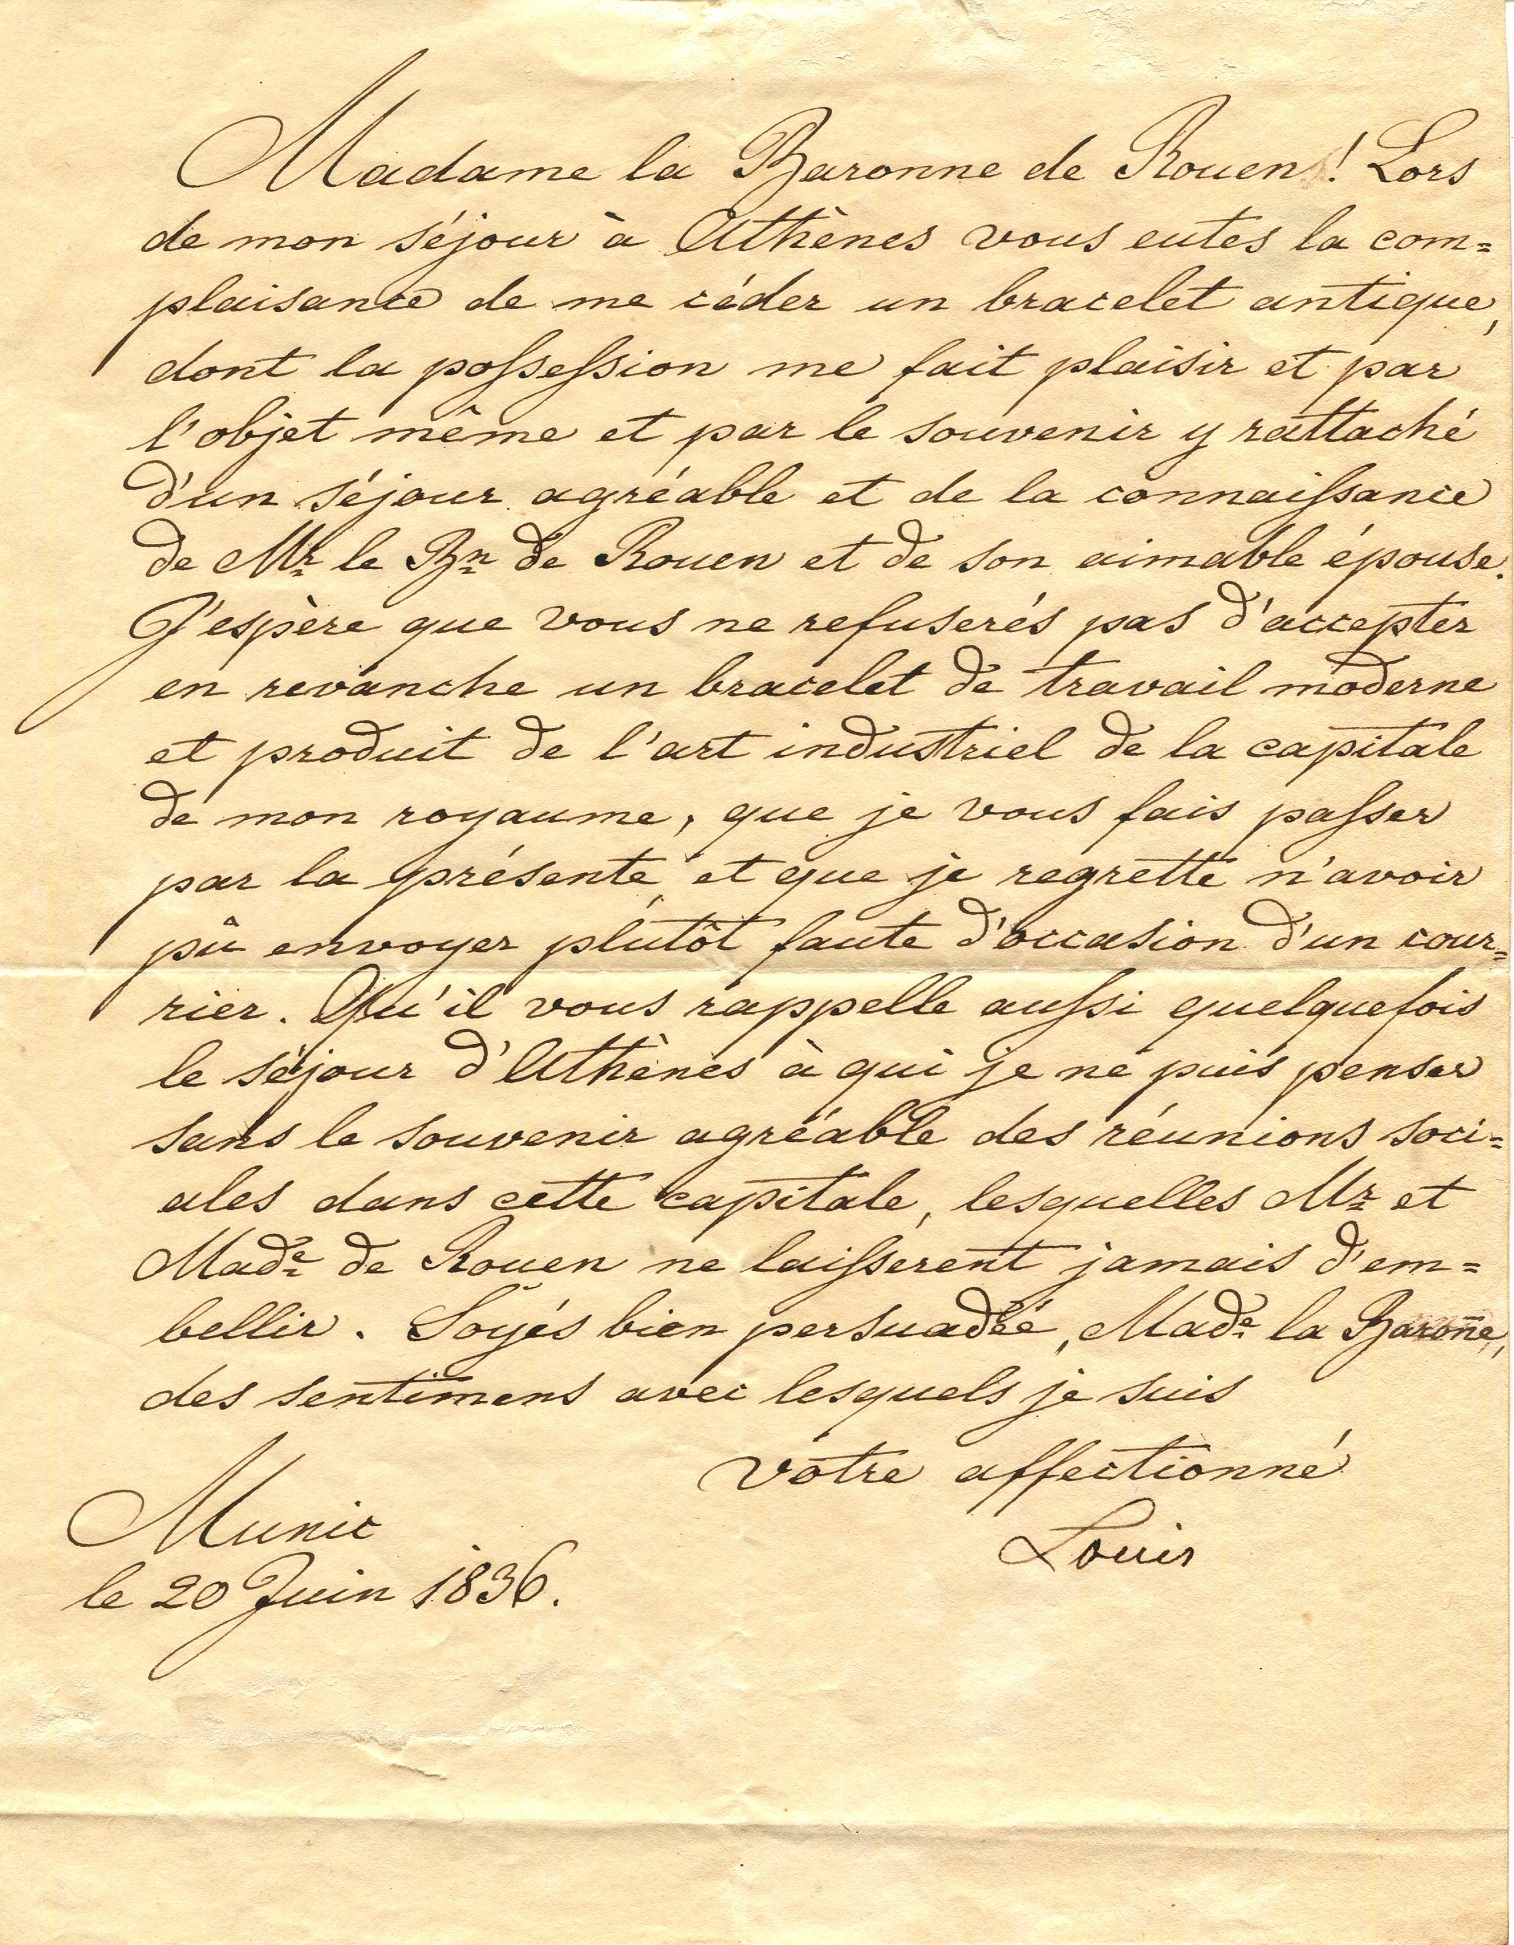 Madame la Baronne de Rouen! Lors
de mon séjour à Athènes vous eutes la com=
plaisance de me céder un bracelet antique,
dont la possession me fait plaisir et par
l'objet même et par le souvenir y rattaché
d'un séjour agréable et de la connaissance
de Mr le Bn de Rouen et de son aimable épouse.
J'espère que vous ne refuserés pas d'accepter
en revanche un bracelet de travail moderne
et produit de l'art industriel de la capitale
de mon royaume, que je vous fais passer
par la présente et que je regrette n'avoir
pû envoyer plutôt faute d'occasion d'un cour=
rier. Qu'il vous rappelle aussi quelquefois
le séjour d'Athènes à qui je ne puis penser
sans le souvenir agréable des réunions soci=
ales dans cette capitale, lesquelles Mr et
Made de Rouen ne laisserent jamais d'em=
bellir. Soyés bien persuadée, Made la Baroñe,
des sentimens avec lesquels je suis
votre affectionné
Louis
Munic
le 20 Juin 1836.